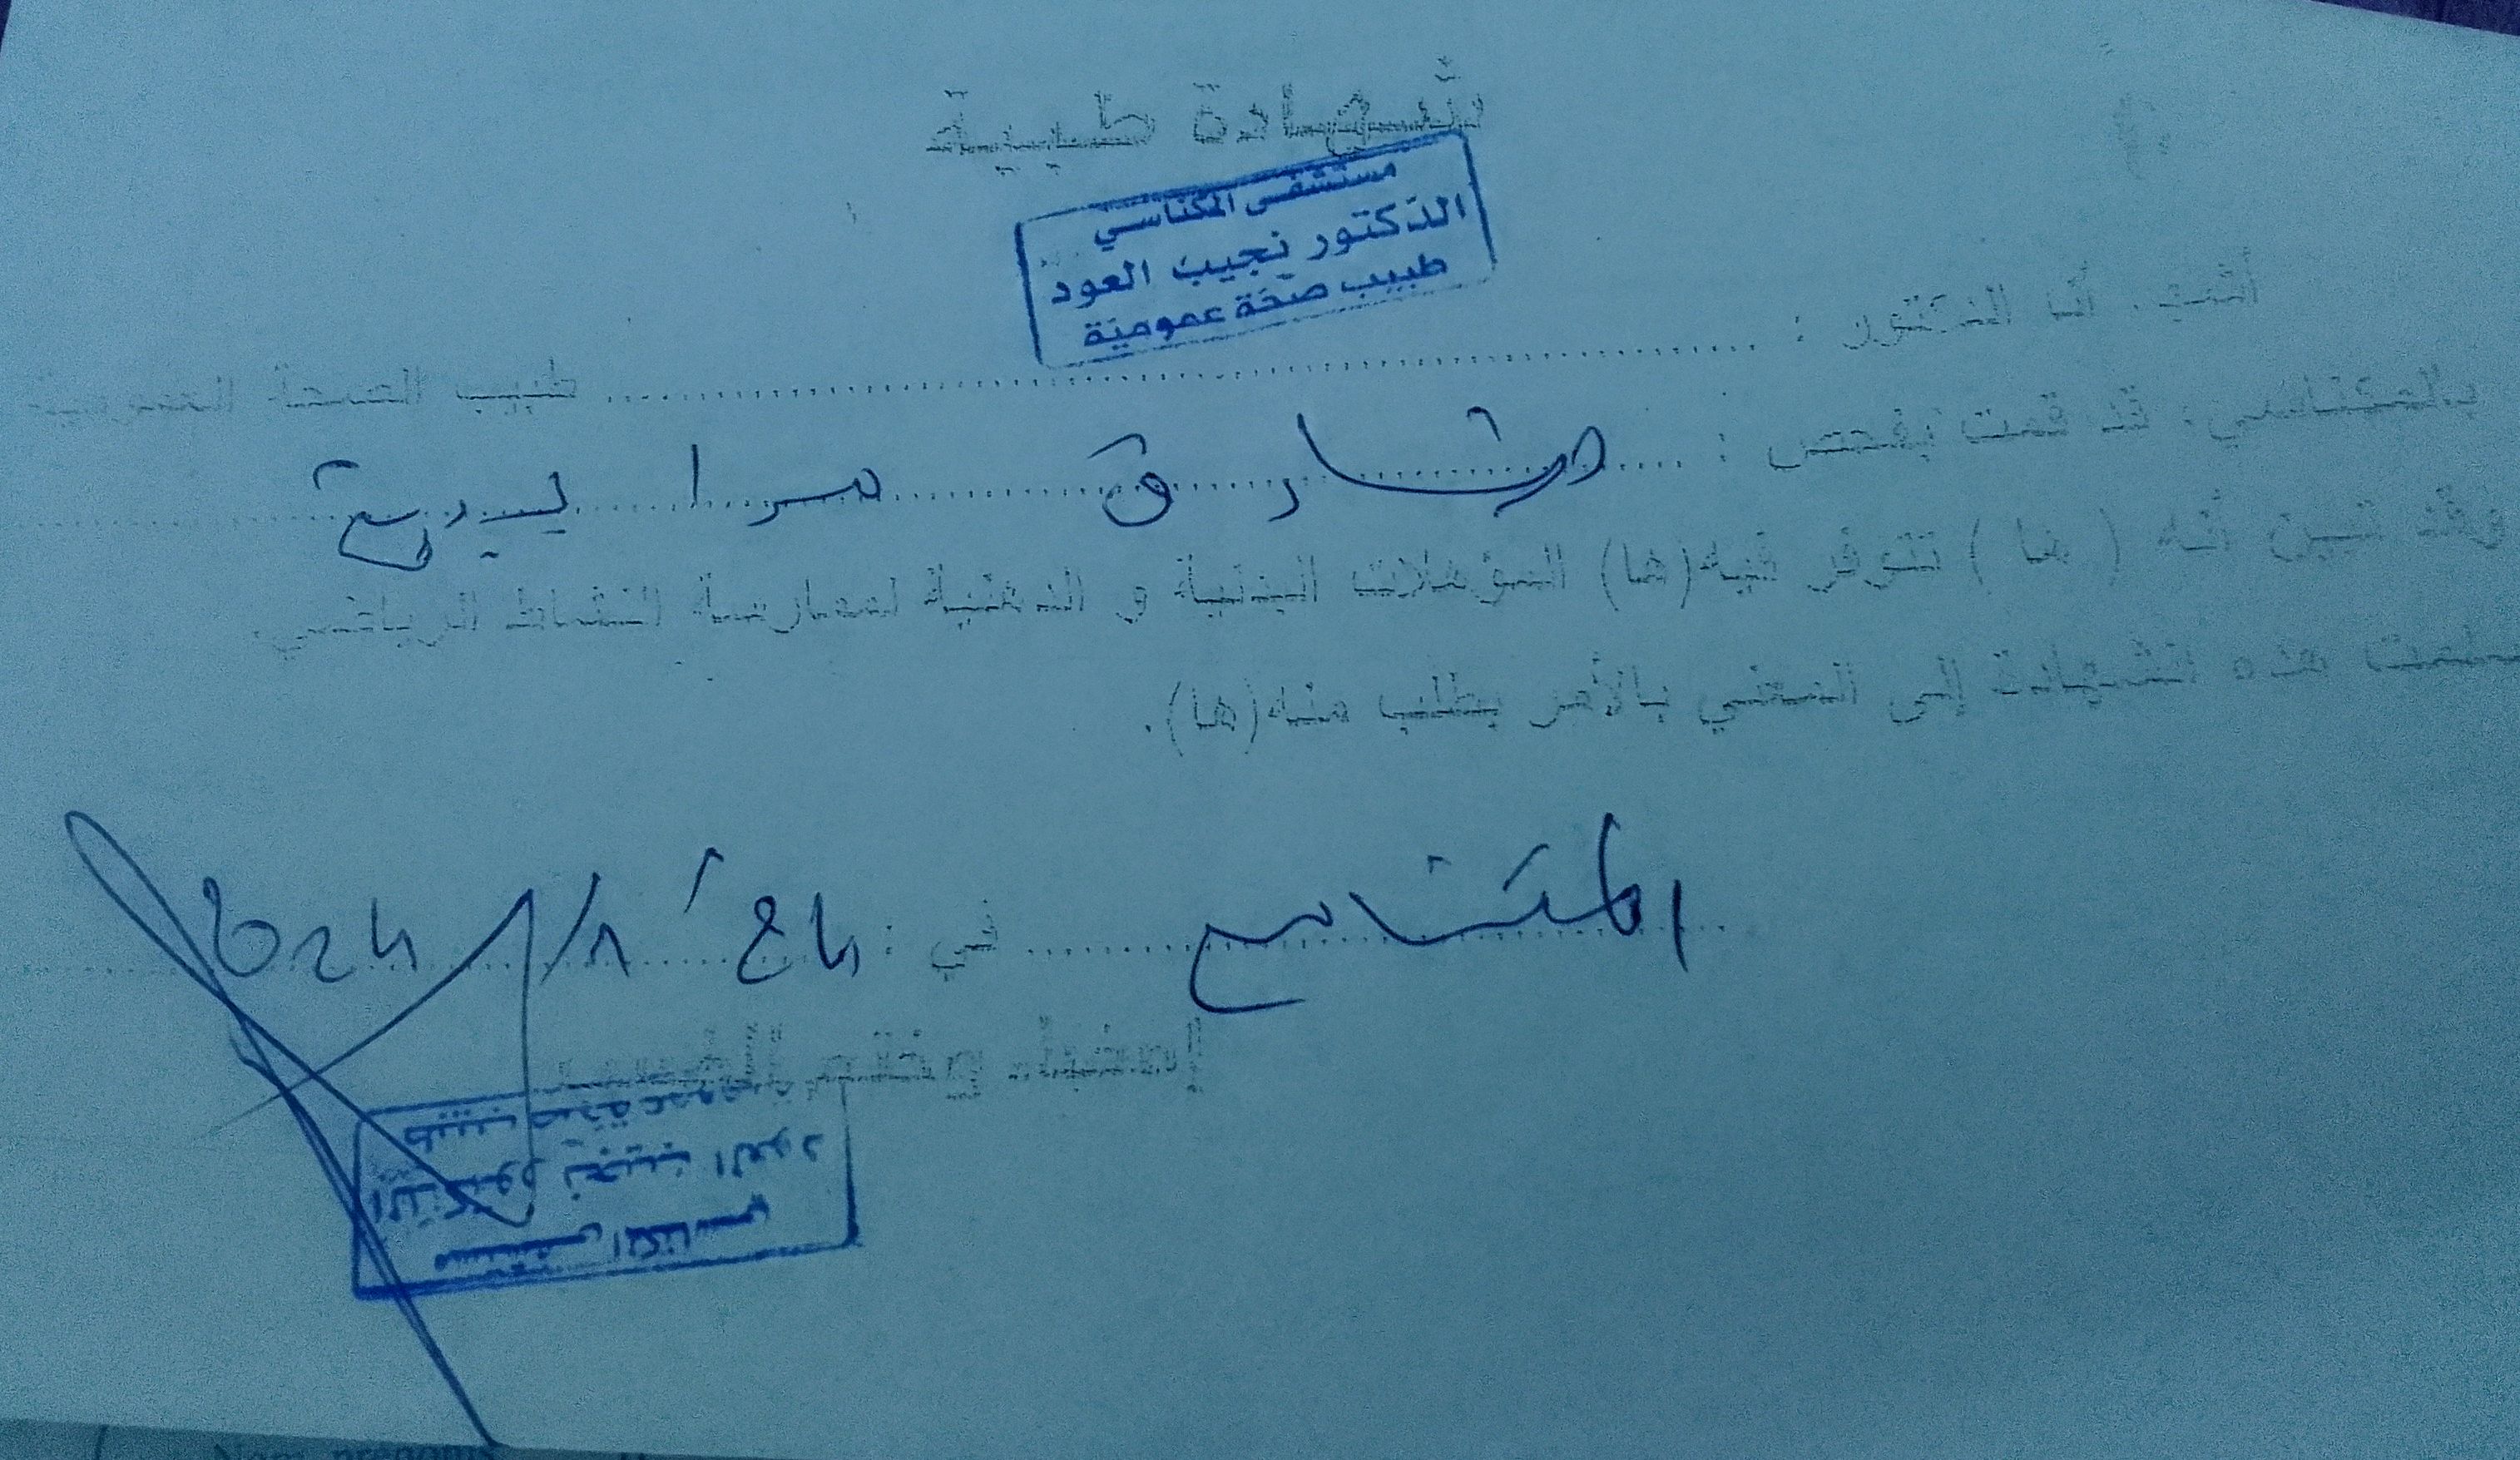 شهادة طبية
مستشفى المكناسي
الدكتور نجيب العود
طبيب صحة عمومية
أنا الدكتور : ........ طبيب الصحة العمومية
بالمكناسي، قد قمت بفحص :
وقد تبين أنه ( ها ) تتوفر فيه(ها) المؤهلات البدنية و الذهنية لممارسة النشاط الرياضي.
سلمت هذه الشهادة إلى المعني بالأمر بطلب منه(ها).
المكناسي في :
إمضاء وختم الطبيب
طبيب صحة عمومية
الدكتور نجيب العود
مستشفى المكناسي
Nom prenoms